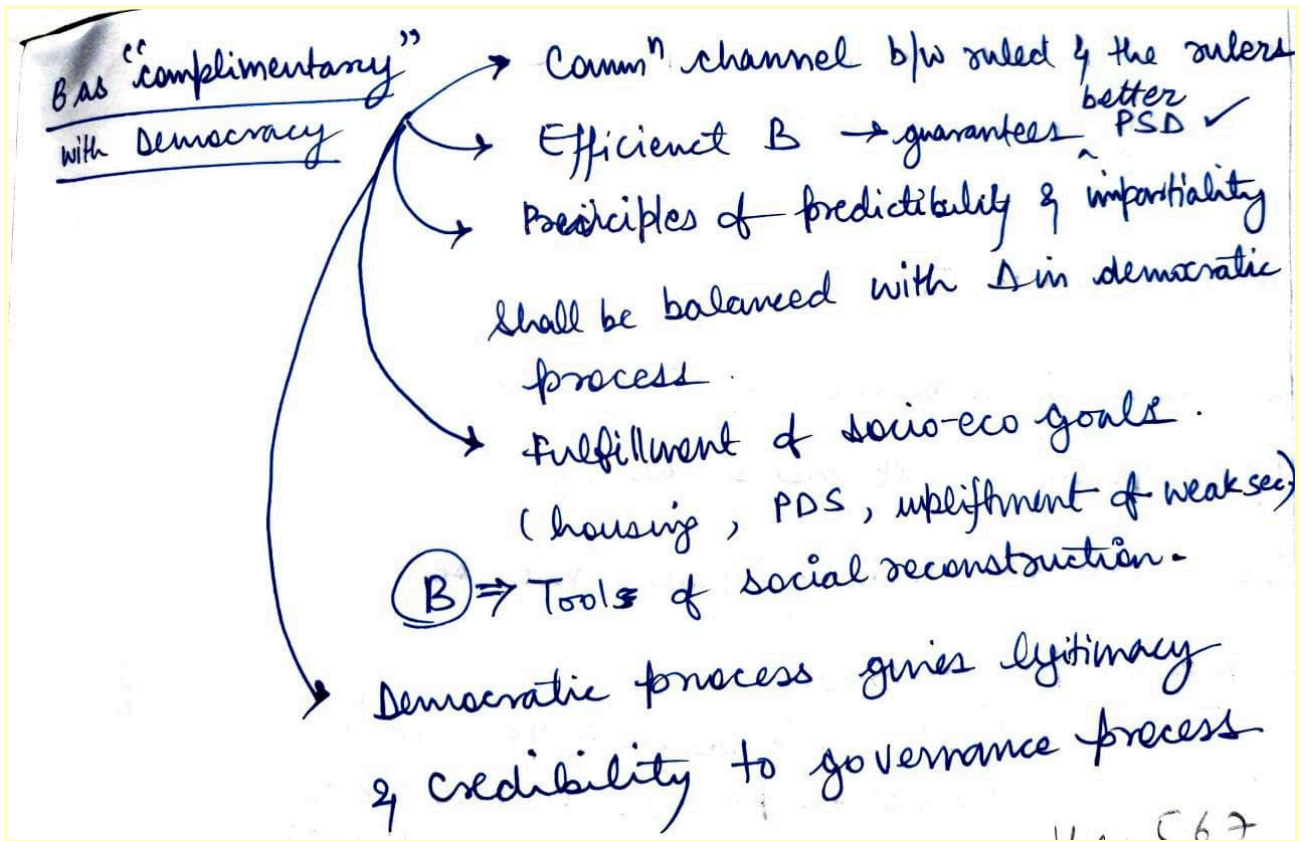 B as "complimentary"
with Democracy
Commⁿ channel b/w ruled & the rulers
Efficienct B → guarantees ^ better PSD ✓
Principles of predictibility & impartiality
shall be balanced with Δ in democratic
process.
Fulfillment of socio-eco goals.
(housing, PDS, upliftment of weak sec)
B ⇒ Tools of social reconstruction.
Democratic process gives legitimacy
& credibility to governance process
567